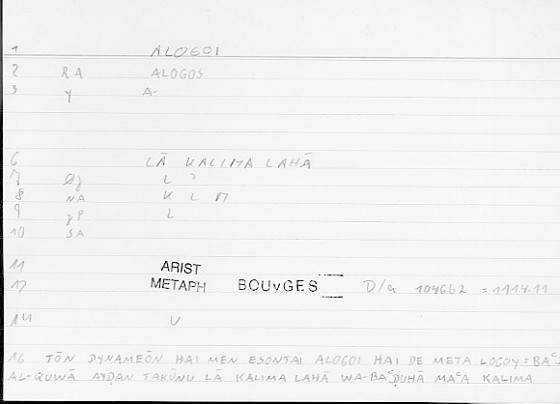 1 ALOGOI
2 RA ALOGOS
3 y A-
6 LĀ KALIMA LAHĀ
7 L ʾ
8 NA K L M
9 L
10 SA
11 ARIST
12 METAPH BOUyGES D/a 1046b2 = 1114.11
14 U
16 TŌN DYNAMEŌN HAI MEN ESONTAI ALOGOI HAI DE META LOGOY = BAʿḌ
AL-QUWĀ AYḌAN TAKŪNU LĀ KALIMA LAHĀ WA-BAʿḌUHĀ MAʿA KALIMA